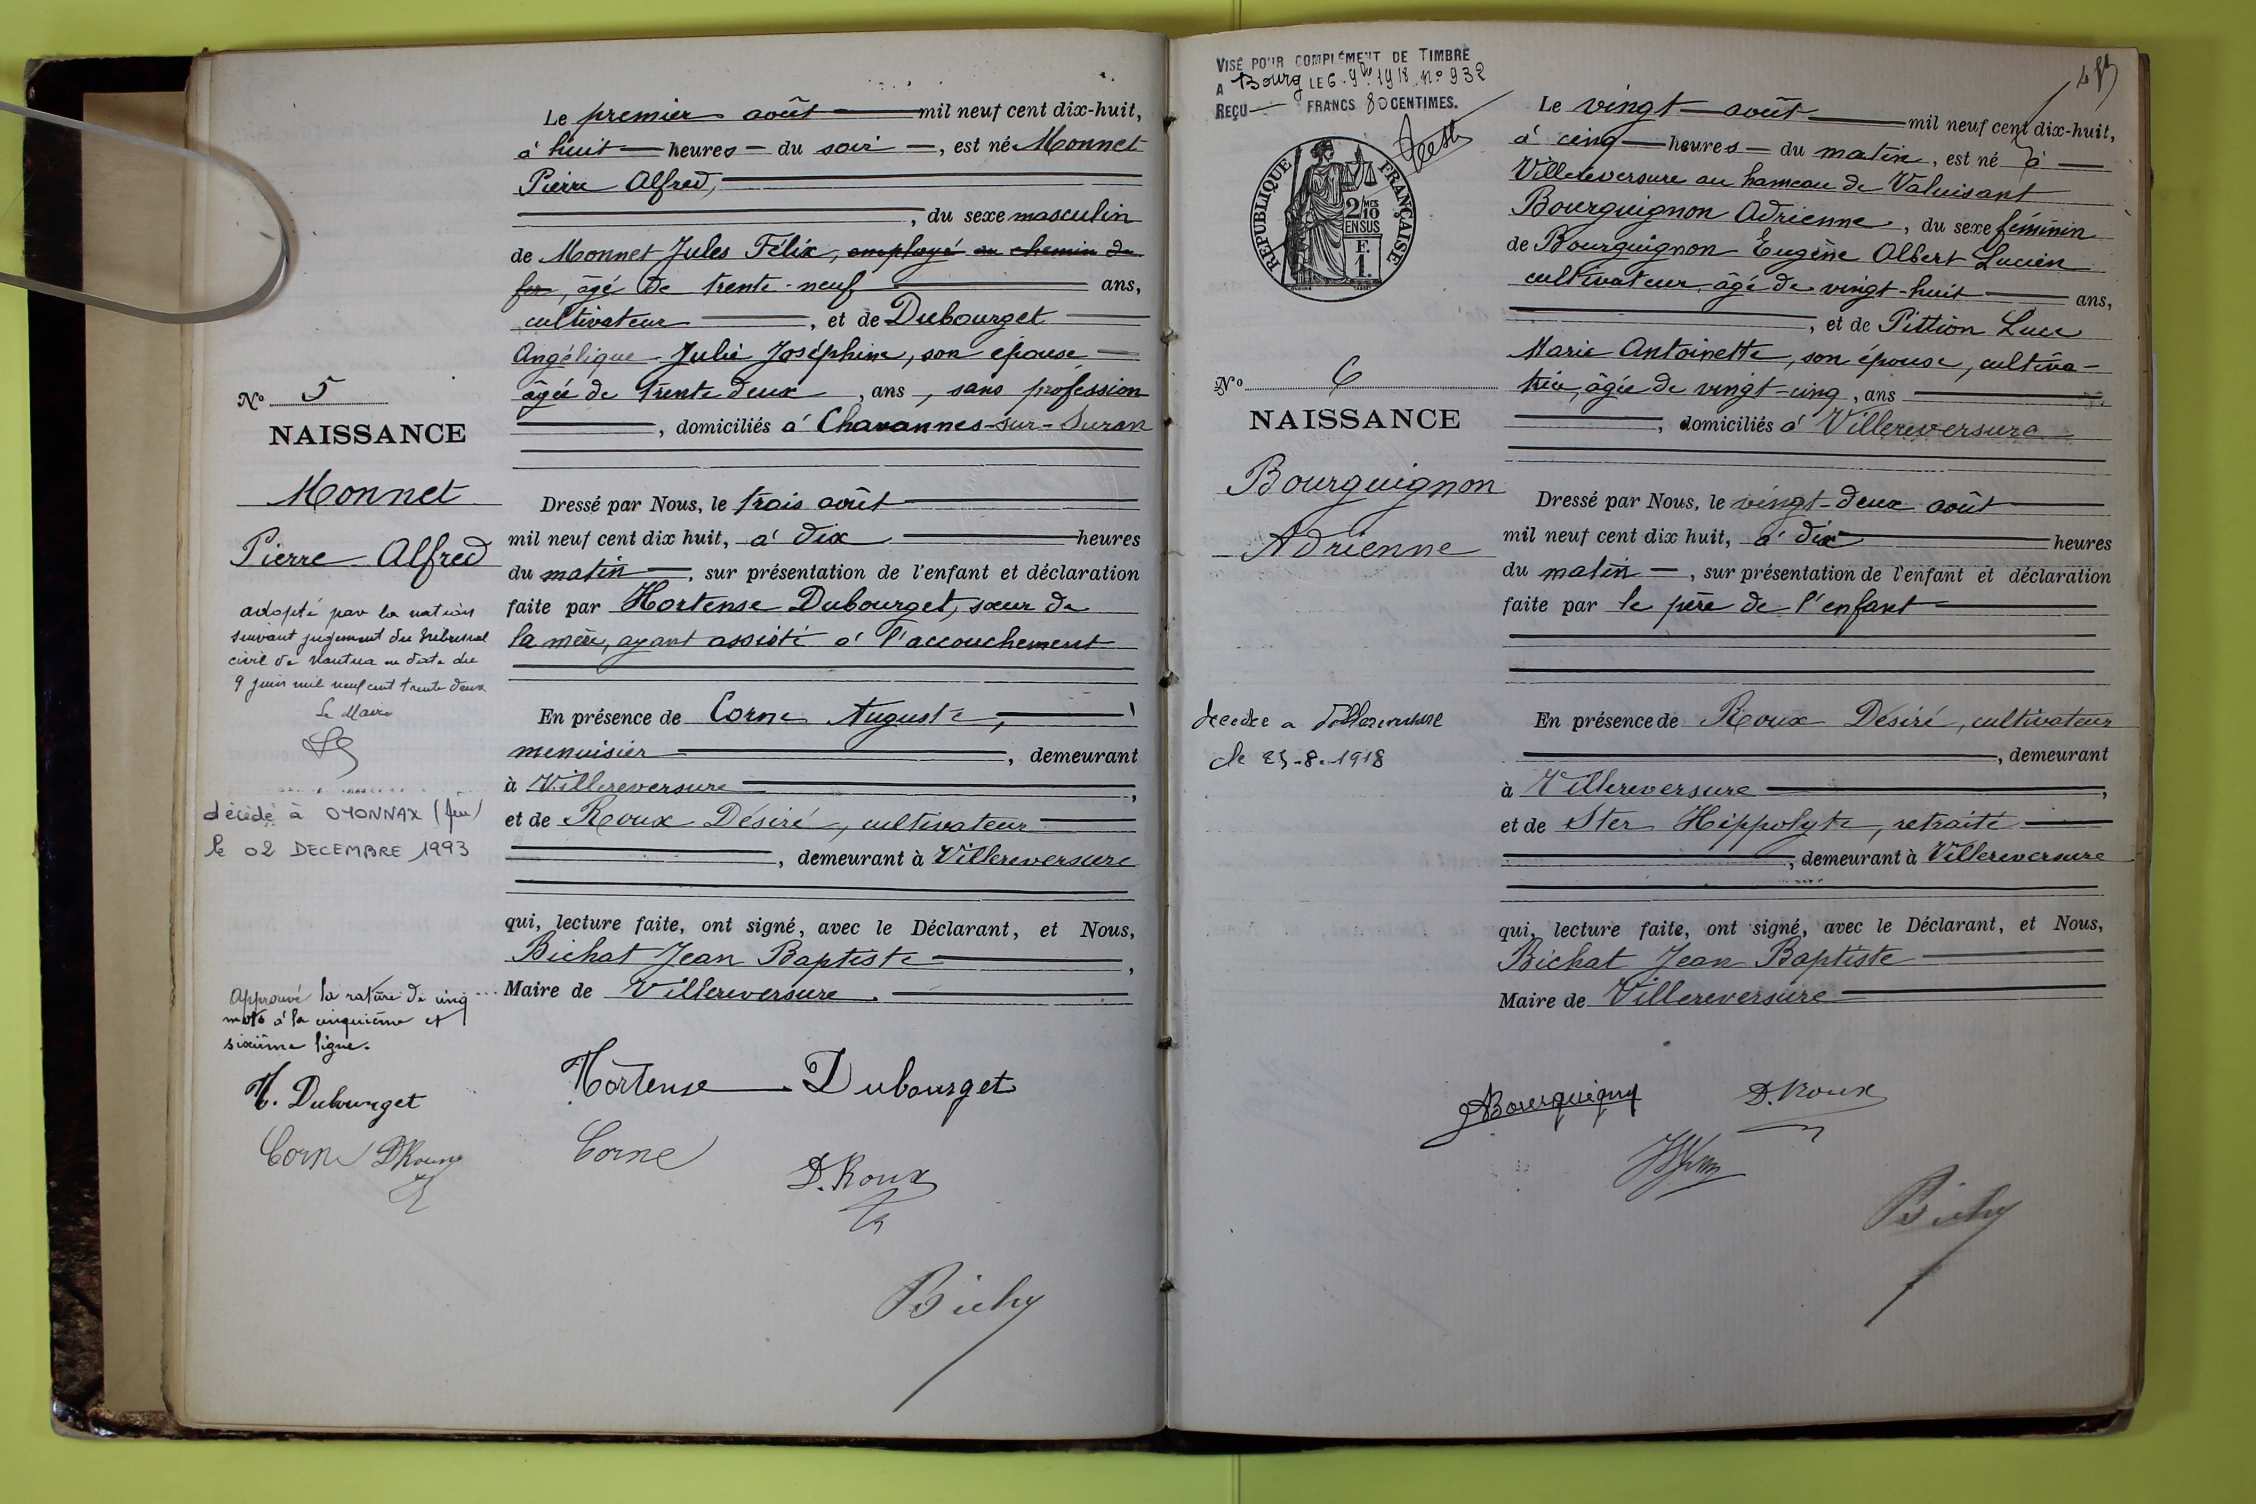 Le premier août mil neuf cent dix-huit,
à huit heures du soir, est né Monnet
Pierre Alfred,
, du sexe masculin
de Monnet Jules Félix, employé au chemin de
fer, âgé de trente-neuf ans,
cultivateur, et de Dubourget
Angélique Julie Joséphine, son épouse
âgée de trente deux, ans, sans profession
, domiciliés à Chavannes-sur-Suran
Nº 5
NAISSANCE
Monnet
Pierre Alfred
adopté par la nation
suivant jugement du tribunal
civil de Nantua en date du
9 juin mil neuf cent trente deux
Le Maire
décédé à OYONNAX (Ain)
le 02 DECEMBRE 1993
Dressé par Nous, le trois août
mil neuf cent dix huit, à dix heures
du matin, sur présentation de l'enfant et déclaration
faite par Hortense Dubourget, sœur de
la mère, ayant assisté à l'accouchement
En présence de Corne Auguste,
menuisier, demeurant
à Villereversure,
et de Roux Désiré, cultivateur
, demeurant à Villereversure
qui, lecture faite, ont signé, avec le Déclarant, et Nous,
Bichat Jean Baptiste,
Maire de Villereversure.
Approuvé la rature de cinq
mots à la cinquième et
sixième ligne.
H. Dubourget
Corne DRoux
Hortense Dubourget
Corne
D. Roux
VISÉ POUR COMPLÉMENT DE TIMBRE
A Bourg LE 6. 9bre 1918 Nº 932
REÇU FRANCS 80 CENTIMES.
RÉPUBLIQUE FRANÇAISE
2/10 MES
EN SUS
F.
1.
Nº 6
NAISSANCE
Bourguignon
Adrienne
le 25-8-1918
Le vingt août mil neuf cent dix-huit,
à cinq heures du matin, est né à
Villereversure au hameau de Valuisant
Bourguignon Adrienne, du sexe féminin
de Bourguignon Eugène Albert Lucien
cultivateur âgé de vingt-huit ans,
, et de Pittion Luce
Marie Antoinette, son épouse, cultiva-
trice, âgée de vingt-cinq, ans
, domiciliés à Villereversure
Dressé par Nous, le vingt-deux août
mil neuf cent dix huit, à dix heures
du matin, sur présentation de l'enfant et déclaration
faite par le père de l'enfant
En présence de Roux Désiré, cultivateur
, demeurant
à Villereversure,
et de Ster Hippolyte, retraité
, demeurant à Villereversure
qui, lecture faite, ont signé, avec le Déclarant, et Nous,
Bichat Jean Baptiste
Maire de Villereversure
D. Roux